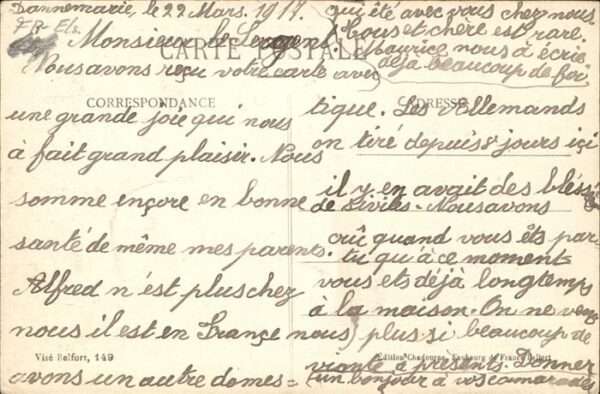 Dannemarie, le 22 Mars. 1917.
Monsieur le Sergent.
CARTE POSTALE
Nous avons reçu votre carte avec
CORRESPONDANCE
une grande joie qui nous
à fait grand plaisir. Nous
somme ençore en bonne
santé de même mes parents.
Alfred n'est plus chez
nous il est en France nous
Visé Belfort, 149
avons un autre domes =
tique. Les Allemands
ADRESSE
on tiré depuis 8 jours içi
il y en avait des bléss
de Civiles. Nous avons
crû quand vous êts par
tu qu'à ce moment
vous ets déjà longtemps
à la maison. On ne
plus si beaucoup de
Edition Chadourne, Faubourg de France, Belfort
viante à présents. Donner
un bonjour à vos camarades
qui été avec vous chez nous.
tous et chère est rare.
Maurice nous à écrie
déjà beaucoup de foi